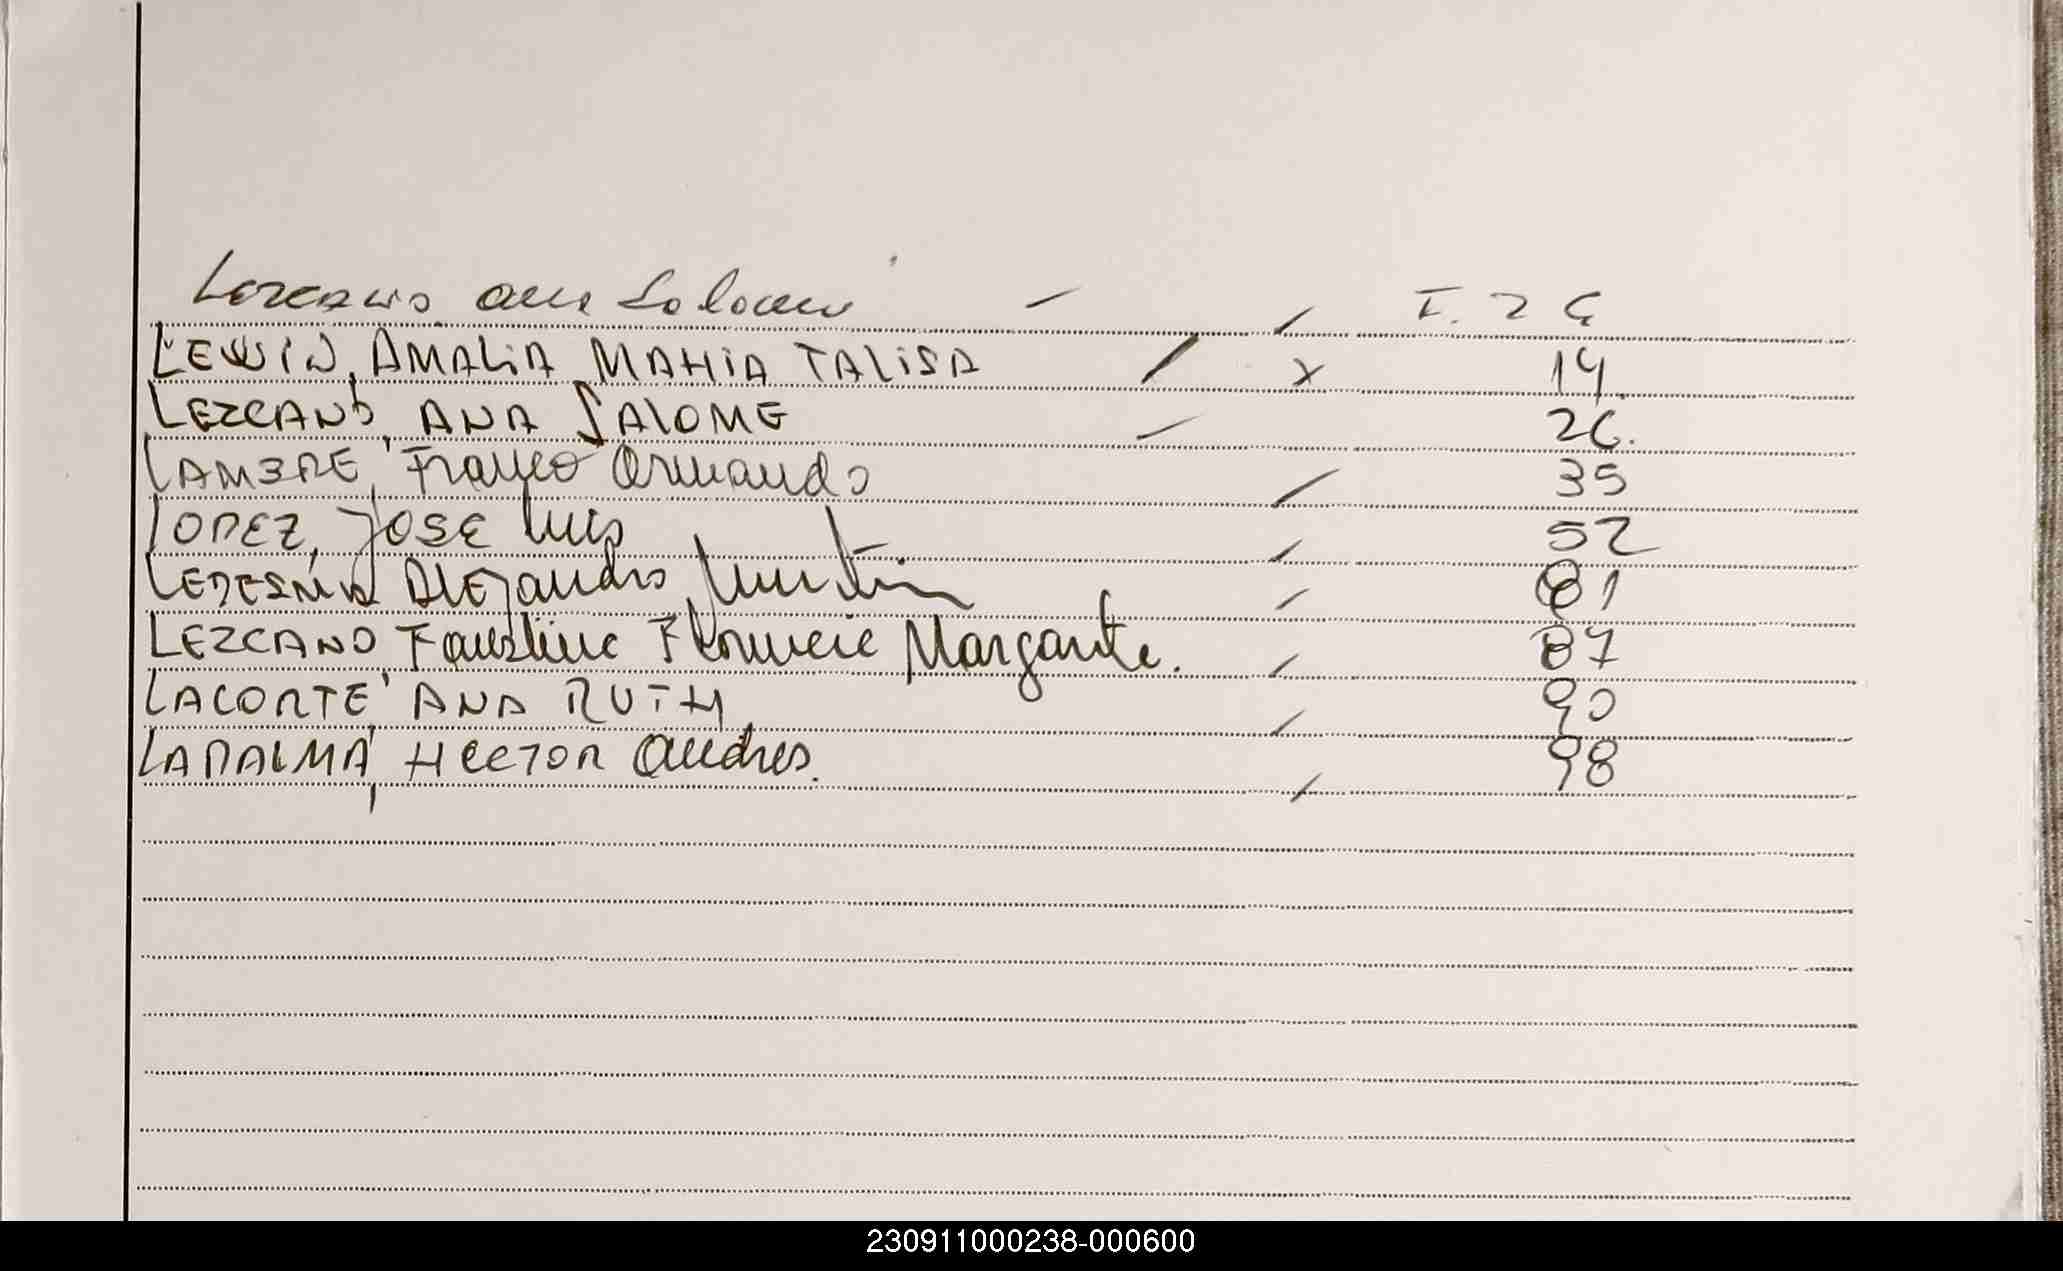 Lezcano Ana Salome - / F. 26
LEWIN, AMALiA MARiA TALiSA / x 14.
LEZCANO, ANA SALOME - 26.
LAMBRE, Franco Armando / 35
LOPEZ, JOSE Luis / 52
LEDESMA, Alejandro Martin / 81
LEZCANO, Faustina Florencia Margarita. / 87
LACORTE, ANA RUTH / 90
LAPALMA, HECTOR Andres. / 98
230911000238-000600